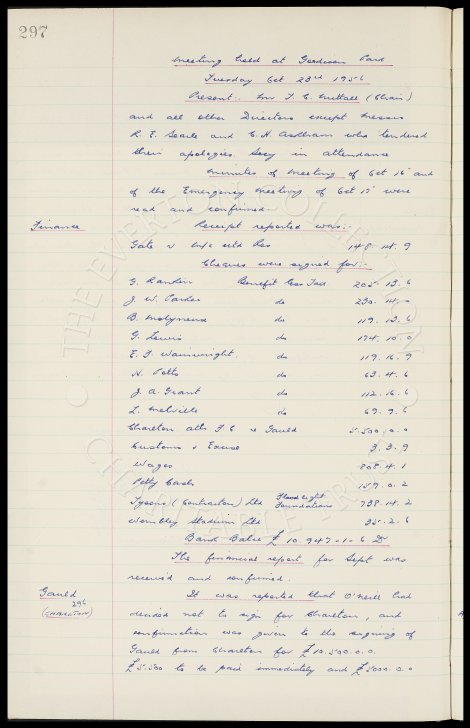 297
Meeting held at Goodison Park
Tuesday Oct 23rd 1956
Present:- Mr F. C. Nuttall (Chair)
and all other Directors except Messrs
R. E. Searle and C. H. Askham who tendered
their apologies. Secy in attendance
Minutes of Meeting of Oct 16 and
of the Emergency Meeting of Oct 17 were
read and confirmed.
Finance Receipt reported was:-
Gate v 148. 14. 9
Cheques were signed for:-
G. Rankin Benefit less Tax 205. 13. 6
J. W. Parker do 230. 14. 0
B. Molyneux do 119. 13. 6
G. Lewis do 174. 10. 0
E. F. Wainwright. do 119. 16. 9
H. Potts do 63. 4. 6
J. A. Grant do 112. 16. 6
L. Melville do 69. 9. 6
Charlton Ath F C re Gauld 5.500. 0. 0
Customs & Excise 3. 3. 9
Wages 808. 4. 1
Petty Cash 159. 0. 2
Tysons (Contractors) Ltd Floodlight Foundations 738. 14. 2
Wembley Stadium Ltd 35. 2. 6
Bank Balce £10.947-1-6 Dr
The financial report for Sept was
received and confirmed.
Gauld 296 (CHARLTON) It was reported that O'Neill had
decided not to sign for Charlton, and
confirmation was given to the signing of
Gauld from Charlton for £10.500.0.0.
£5.500 to be paid immediately and £5000.0.0
THE EVERTON COLLECTION
CHARITABLE TRUST